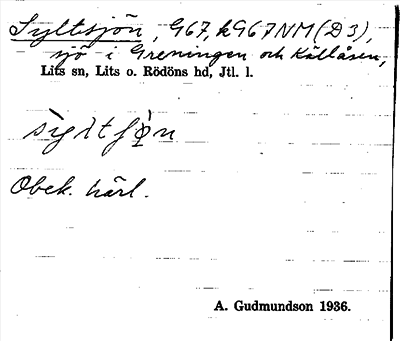 Syltsjön, G67, kG67NM (D3),
sjö i Greningen och Källåsen,
Lits sn, Lits o. Rödöns hd, Jtl. l.
Obek. härl.
A. Gudmundson 1936.